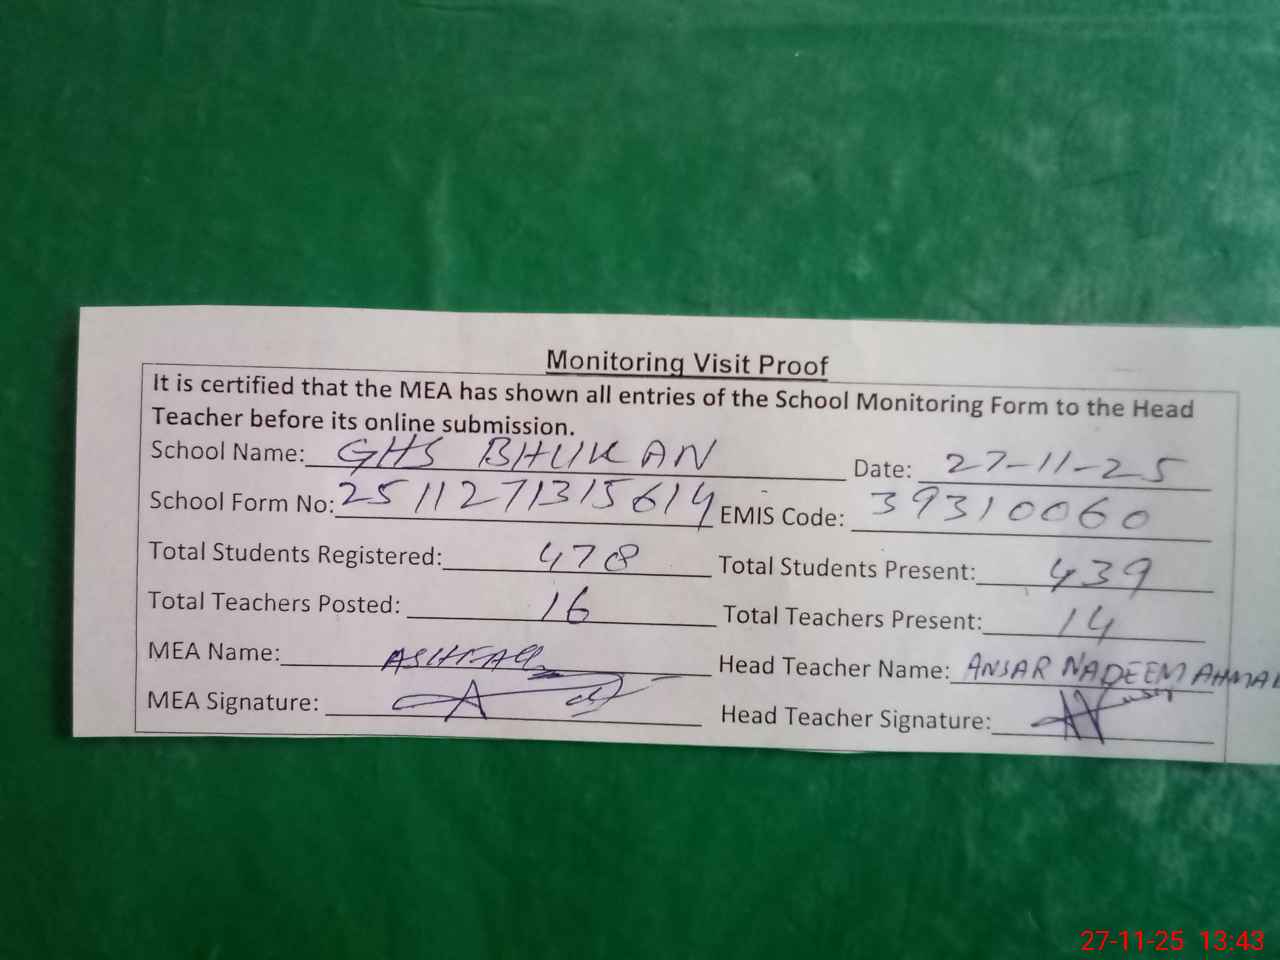 Monitoring Visit Proof
It is certified that the MEA has shown all entries of the School Monitoring Form to the Head
Teacher before its online submission.
School Name: GHS BHUKAN Date: 27-11-25
School Form No: 2511271315614 EMIS Code: 39310060
Total Students Registered: 478 Total Students Present: 439
Total Teachers Posted: 16 Total Teachers Present: 14
MEA Name: ASHFAQ Head Teacher Name: ANSAR NADEEM AHMAD
MEA Signature: Head Teacher Signature:
27-11-25 13:43